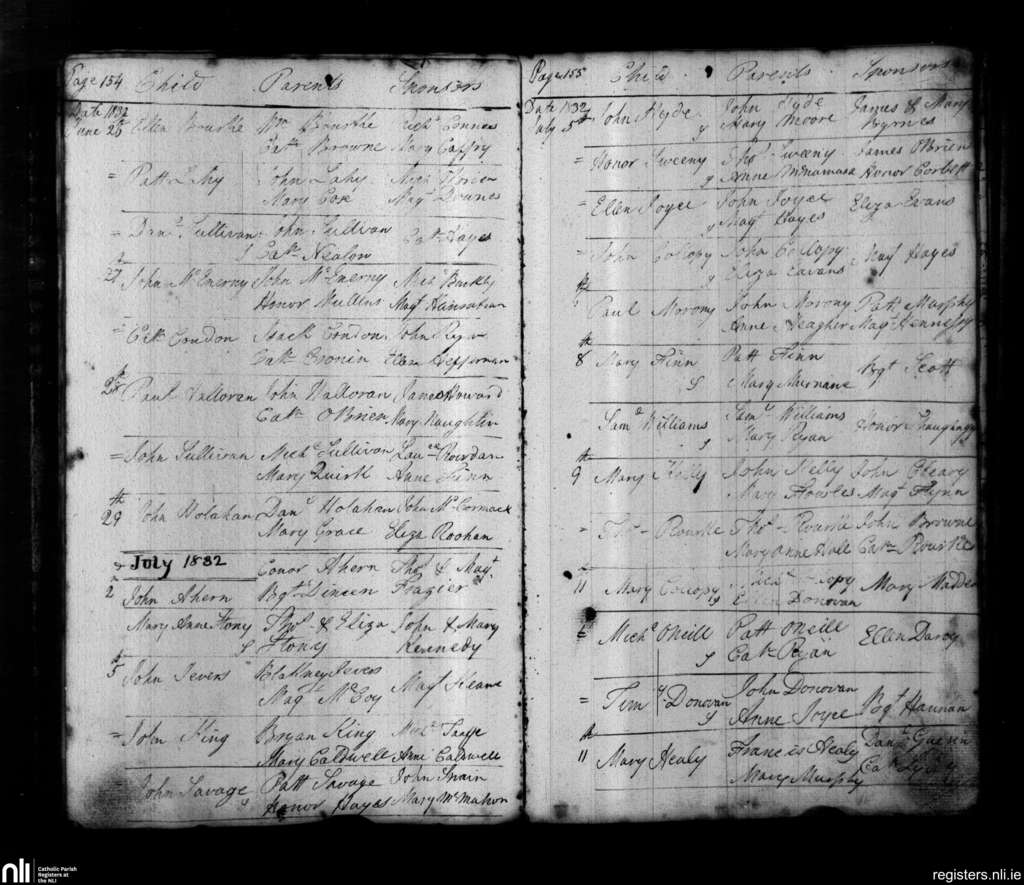 Page 154 Child Parents Sponsors
Date 1832
June 26th Ellen Bourke Wm Bourke Richd Connor
Cathn Browne Mary Caffry
= Patt Lahy John Lahy Mich
Mary Cox Margt Downes
= Danl Sullivan John Sullivan Cathn Hayes
Cathn Nealon
27 John McEnerny John McEnerny Michl Buckly
Honor Mullins Magt
= Condon Condon John Ryan
Cronin Ellen Heffernan
28th Paul Halloran John Halloran James Howard
Cathn O'Brien Mary Naughtin
= John Sullivan Michl Sullivan Riordan
Mary Quirk Anne Finn
29th John Holahan Danl Holahan John McCormack
Mary Grace Eliza Roohan
July 1832
2 John Ahern Conor Ahern Thos & Magt
Bgt Dineen Frazier
Mary Anne Stony Thos & Eliza John & Mary
Stony Kennedy
5 John Jevers Blakney Jevers Magt Keane
Mag McCoy
= John King Bryan King Michl
Mary Caldwell Anne Caldwell
= John Savage Patt Savage John Swain
Honor Hayes Mary McMahon
Page 155 Child Parents Sponsors
Date 1832
July 5th John Hyde John Hyde James & Mary
Mary Moore Byrnes
= Honor Sweeny Thos Sweeny James OBrien
Anne McNamara Honor Corbett
= Ellen Joyce John Joyce Eliza Evans
Magt Hayes
= John Collopy John Collopy Hayes
Eliza Eavans
Paul Morony John Morony Patt Murphy
Anne Meagher Magt Hennessy
8th Mary Finn Patt Finn Bgt Scott
Mary Murnane
Saml Williams Saml Williams Honor
Mary Ryan
9th Mary Kelly John Kelly John Cleary
Mary Fowles Magt Flynn
= Thos Rourke Thos Rourke John Browne
Mary Anne Hall Cathn Rourke
11 Mary Collopy Michl Collopy Mary Madden
Ellen Donovan
= Michl ONeill Patt ONeill Ellen Darcy
Cathn Ryan
= Tim Donovan John Donovan Bgt Hannan
Anne Joyce
11th Mary Healy Frances Healy Danl
Mary Murphy
nli Catholic Parish
Registers at
the NLI
registers.nli.ie